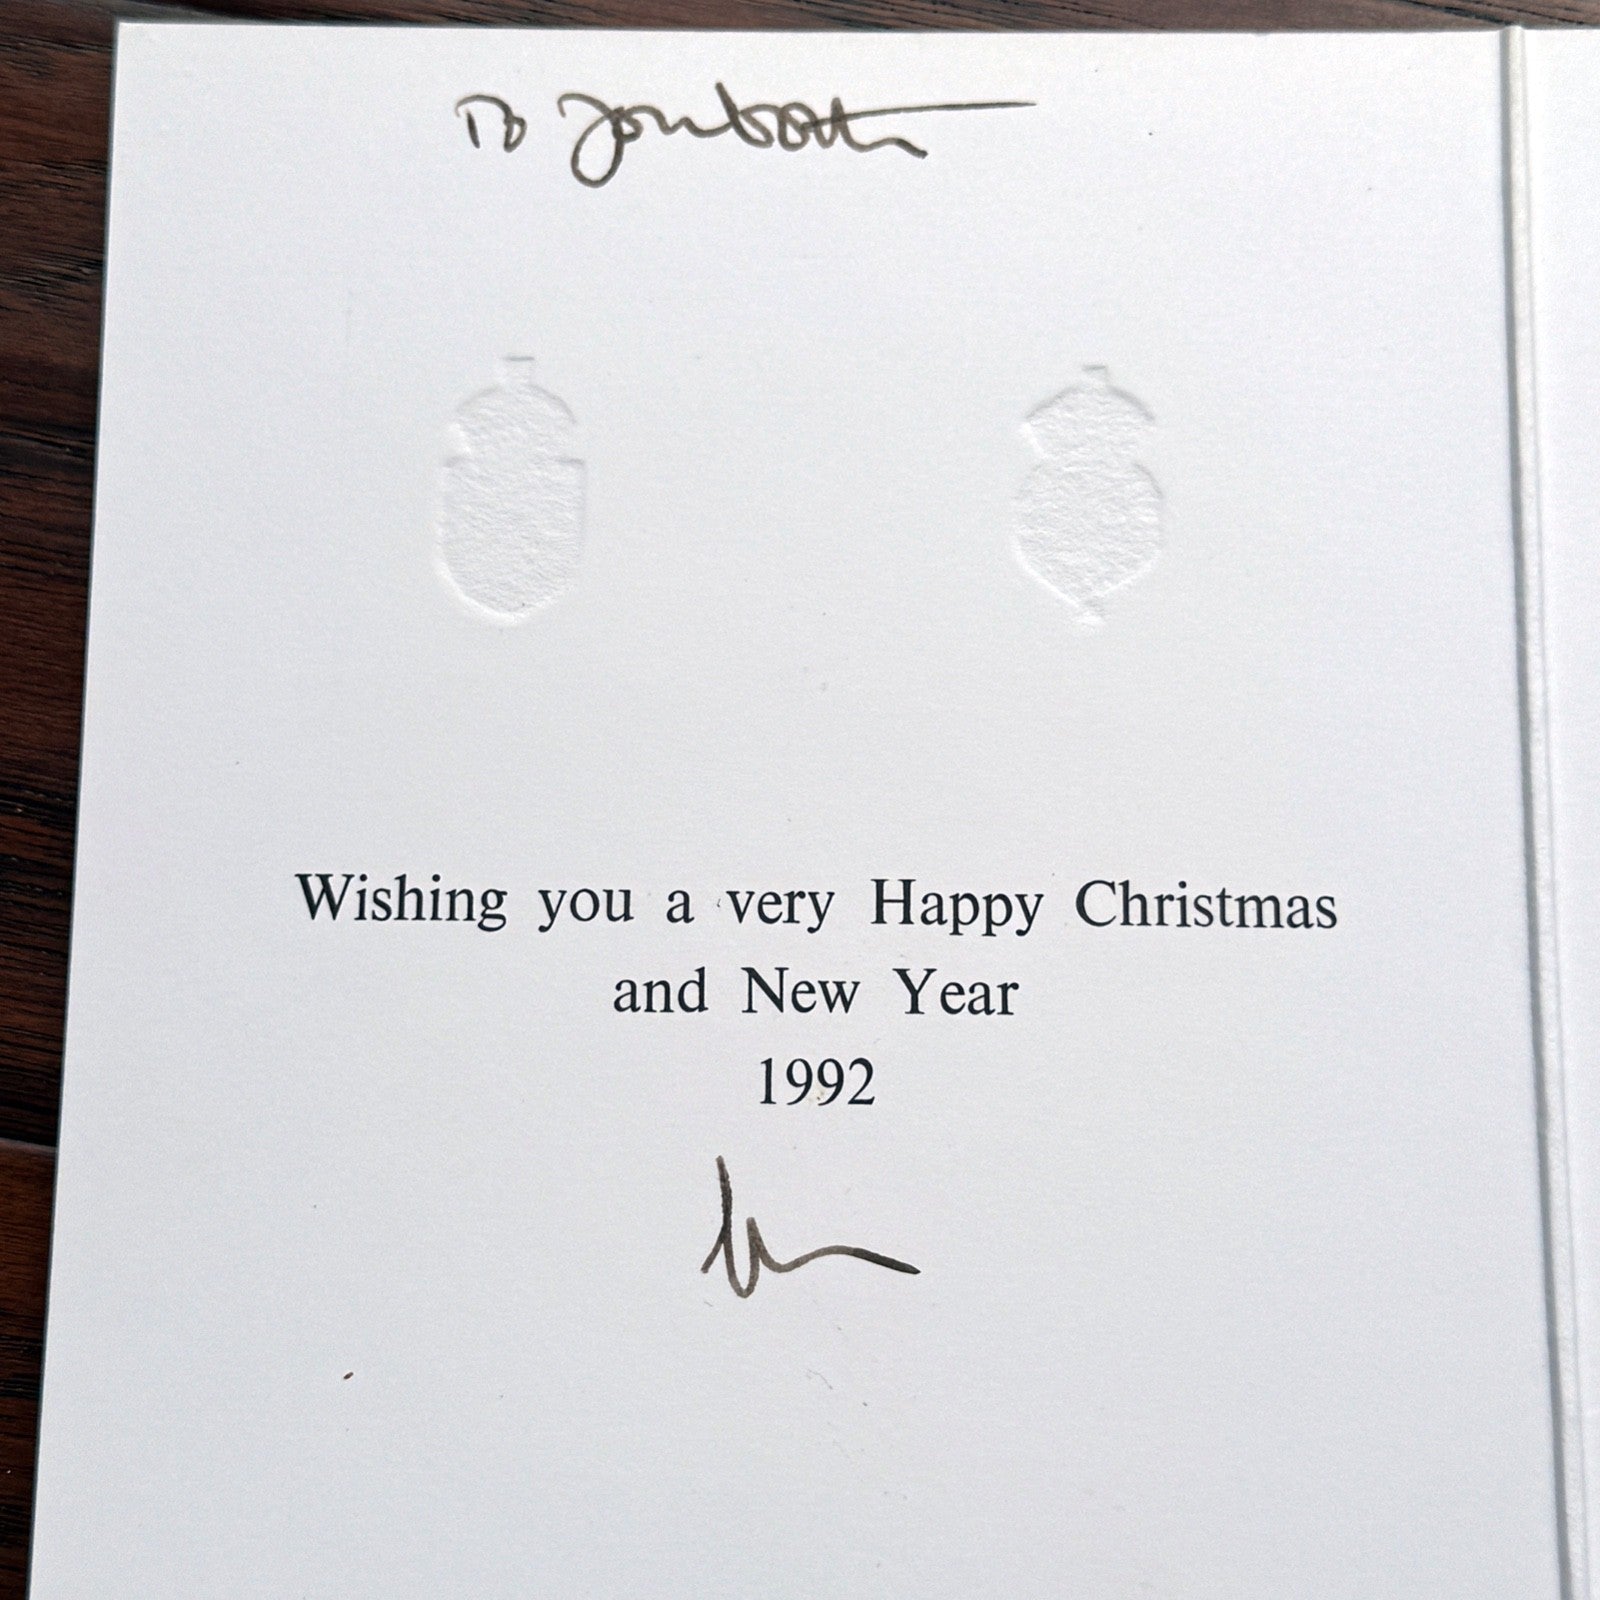 To you both
Wishing you a very Happy Christmas
and New Year
1992